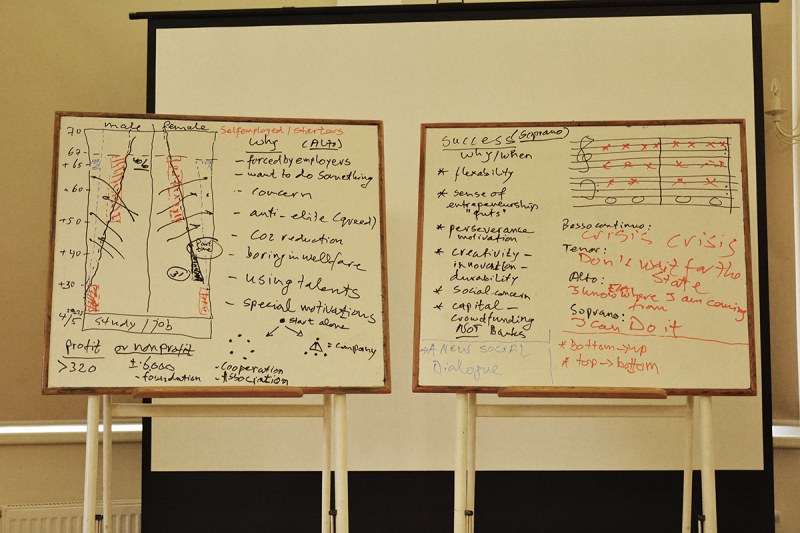 male female
70
67
+65
+60
+50
+40
+30
study / job
profit or nonprofit
>320 ±6000
- foundation
- cooperation
- Association
Selfemployed / starters
Why (ALTO)
- forced by employers
- want to do something
- concern
- anti-elite (greed)
- CO2 reduction
- boring in wellfare
- using talents
- special motivations
start alone
= company
Success (Soprano)
why/when
* flexability
* sense of
entrepeneurships
"guts"
* perseverance
motivation
* creativity -
innovation -
durability
* Social concern
* capital -
crowdfunding
NOT Banks
A New social
Dialogue
Basso continuo:
Crisis Crisis
Tenor:
Don't wait for the
State
Alto:
I know where I am coming
from
Soprano:
I can Do it
* bottom → up
* top → bottom